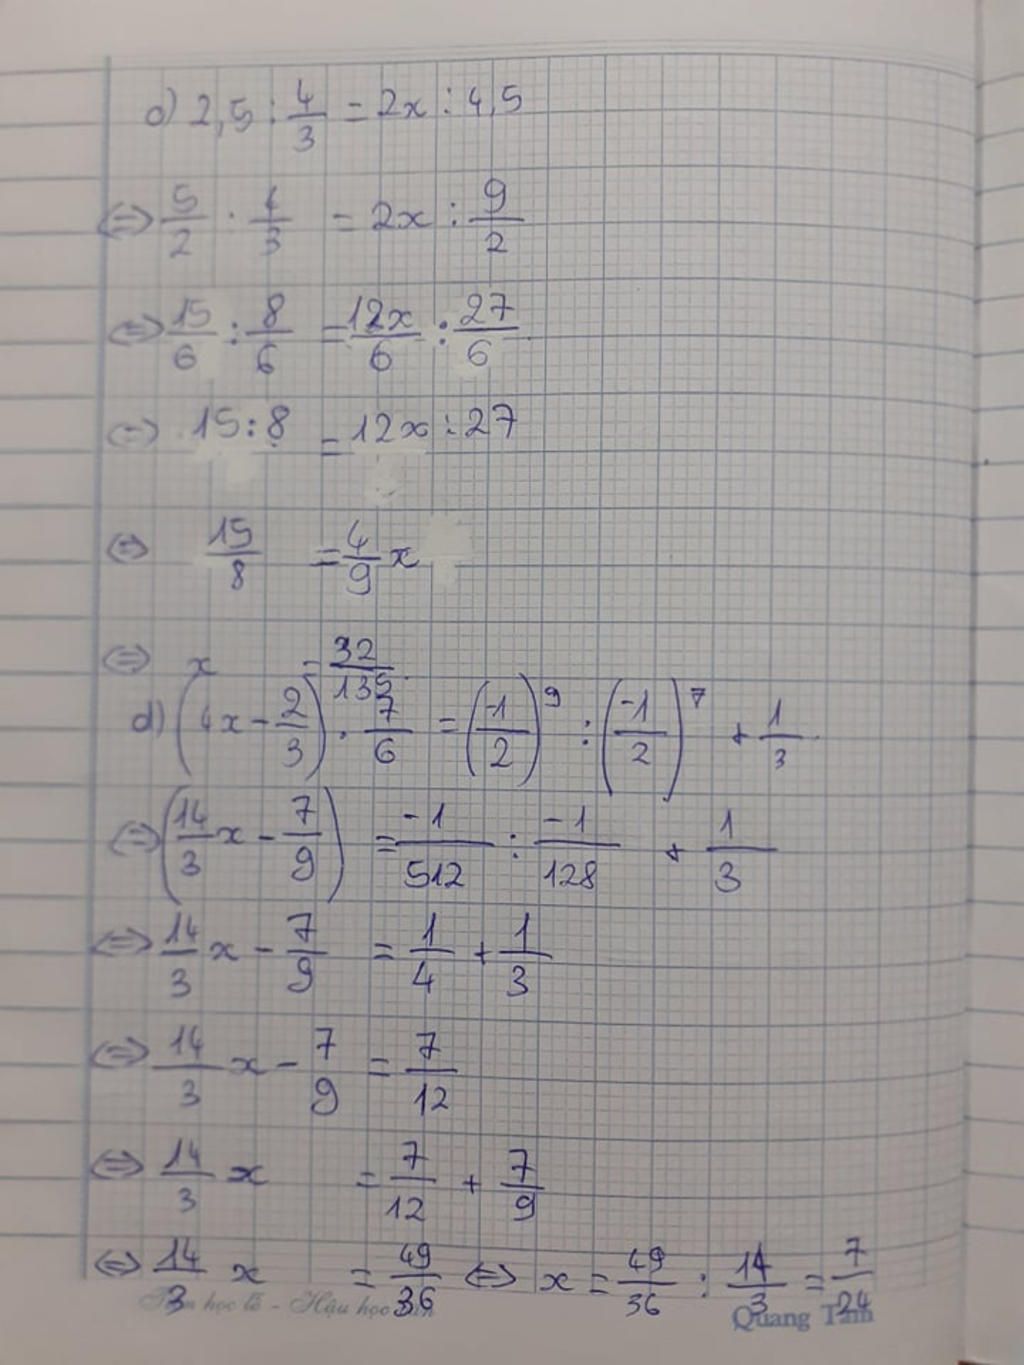 c) 2,5 : 4/3 = 2x : 4,5
⇔ 5/2 : 4/3 = 2x : 9/2
⇔ 15/6 : 8/6 = 12x/6 : 27/6
⇔ 15 : 8 = 12x : 27
⇔ 15/8 = 4/9 x
⇔ x = 32/135
d) (4x - 2/3) . 7/6 = (-1/2)^9 : (-1/2)^7 + 1/3
⇔ (14/3 x - 7/9) = -1/512 : -1/128 + 1/3
⇔ 14/3 x - 7/9 = 1/4 + 1/3
⇔ 14/3 x - 7/9 = 7/12
⇔ 14/3 x = 7/12 + 7/9
⇔ 14/3 x = 49/36 ⇔ x = 49/36 : 14/3 = 7/24
học lễ - Hậu học Quang Tâm